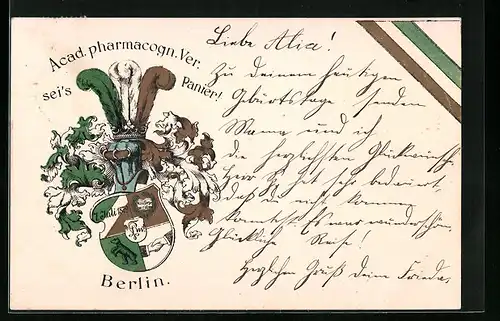 Acad. pharmacogn. Ver.
sei's Panier!
Berlin.
Liebe Alice!
Zu deinem heutigen
Gburtstage senden
Mama und ich
die herzlichsten Glückwünsche.
Herr G. hat sehr bedauert,
daß du nicht kommen
konntest. Es war wunderschön.
Glückliche Reise!
Herzlichen Gruß Deine Frieda.